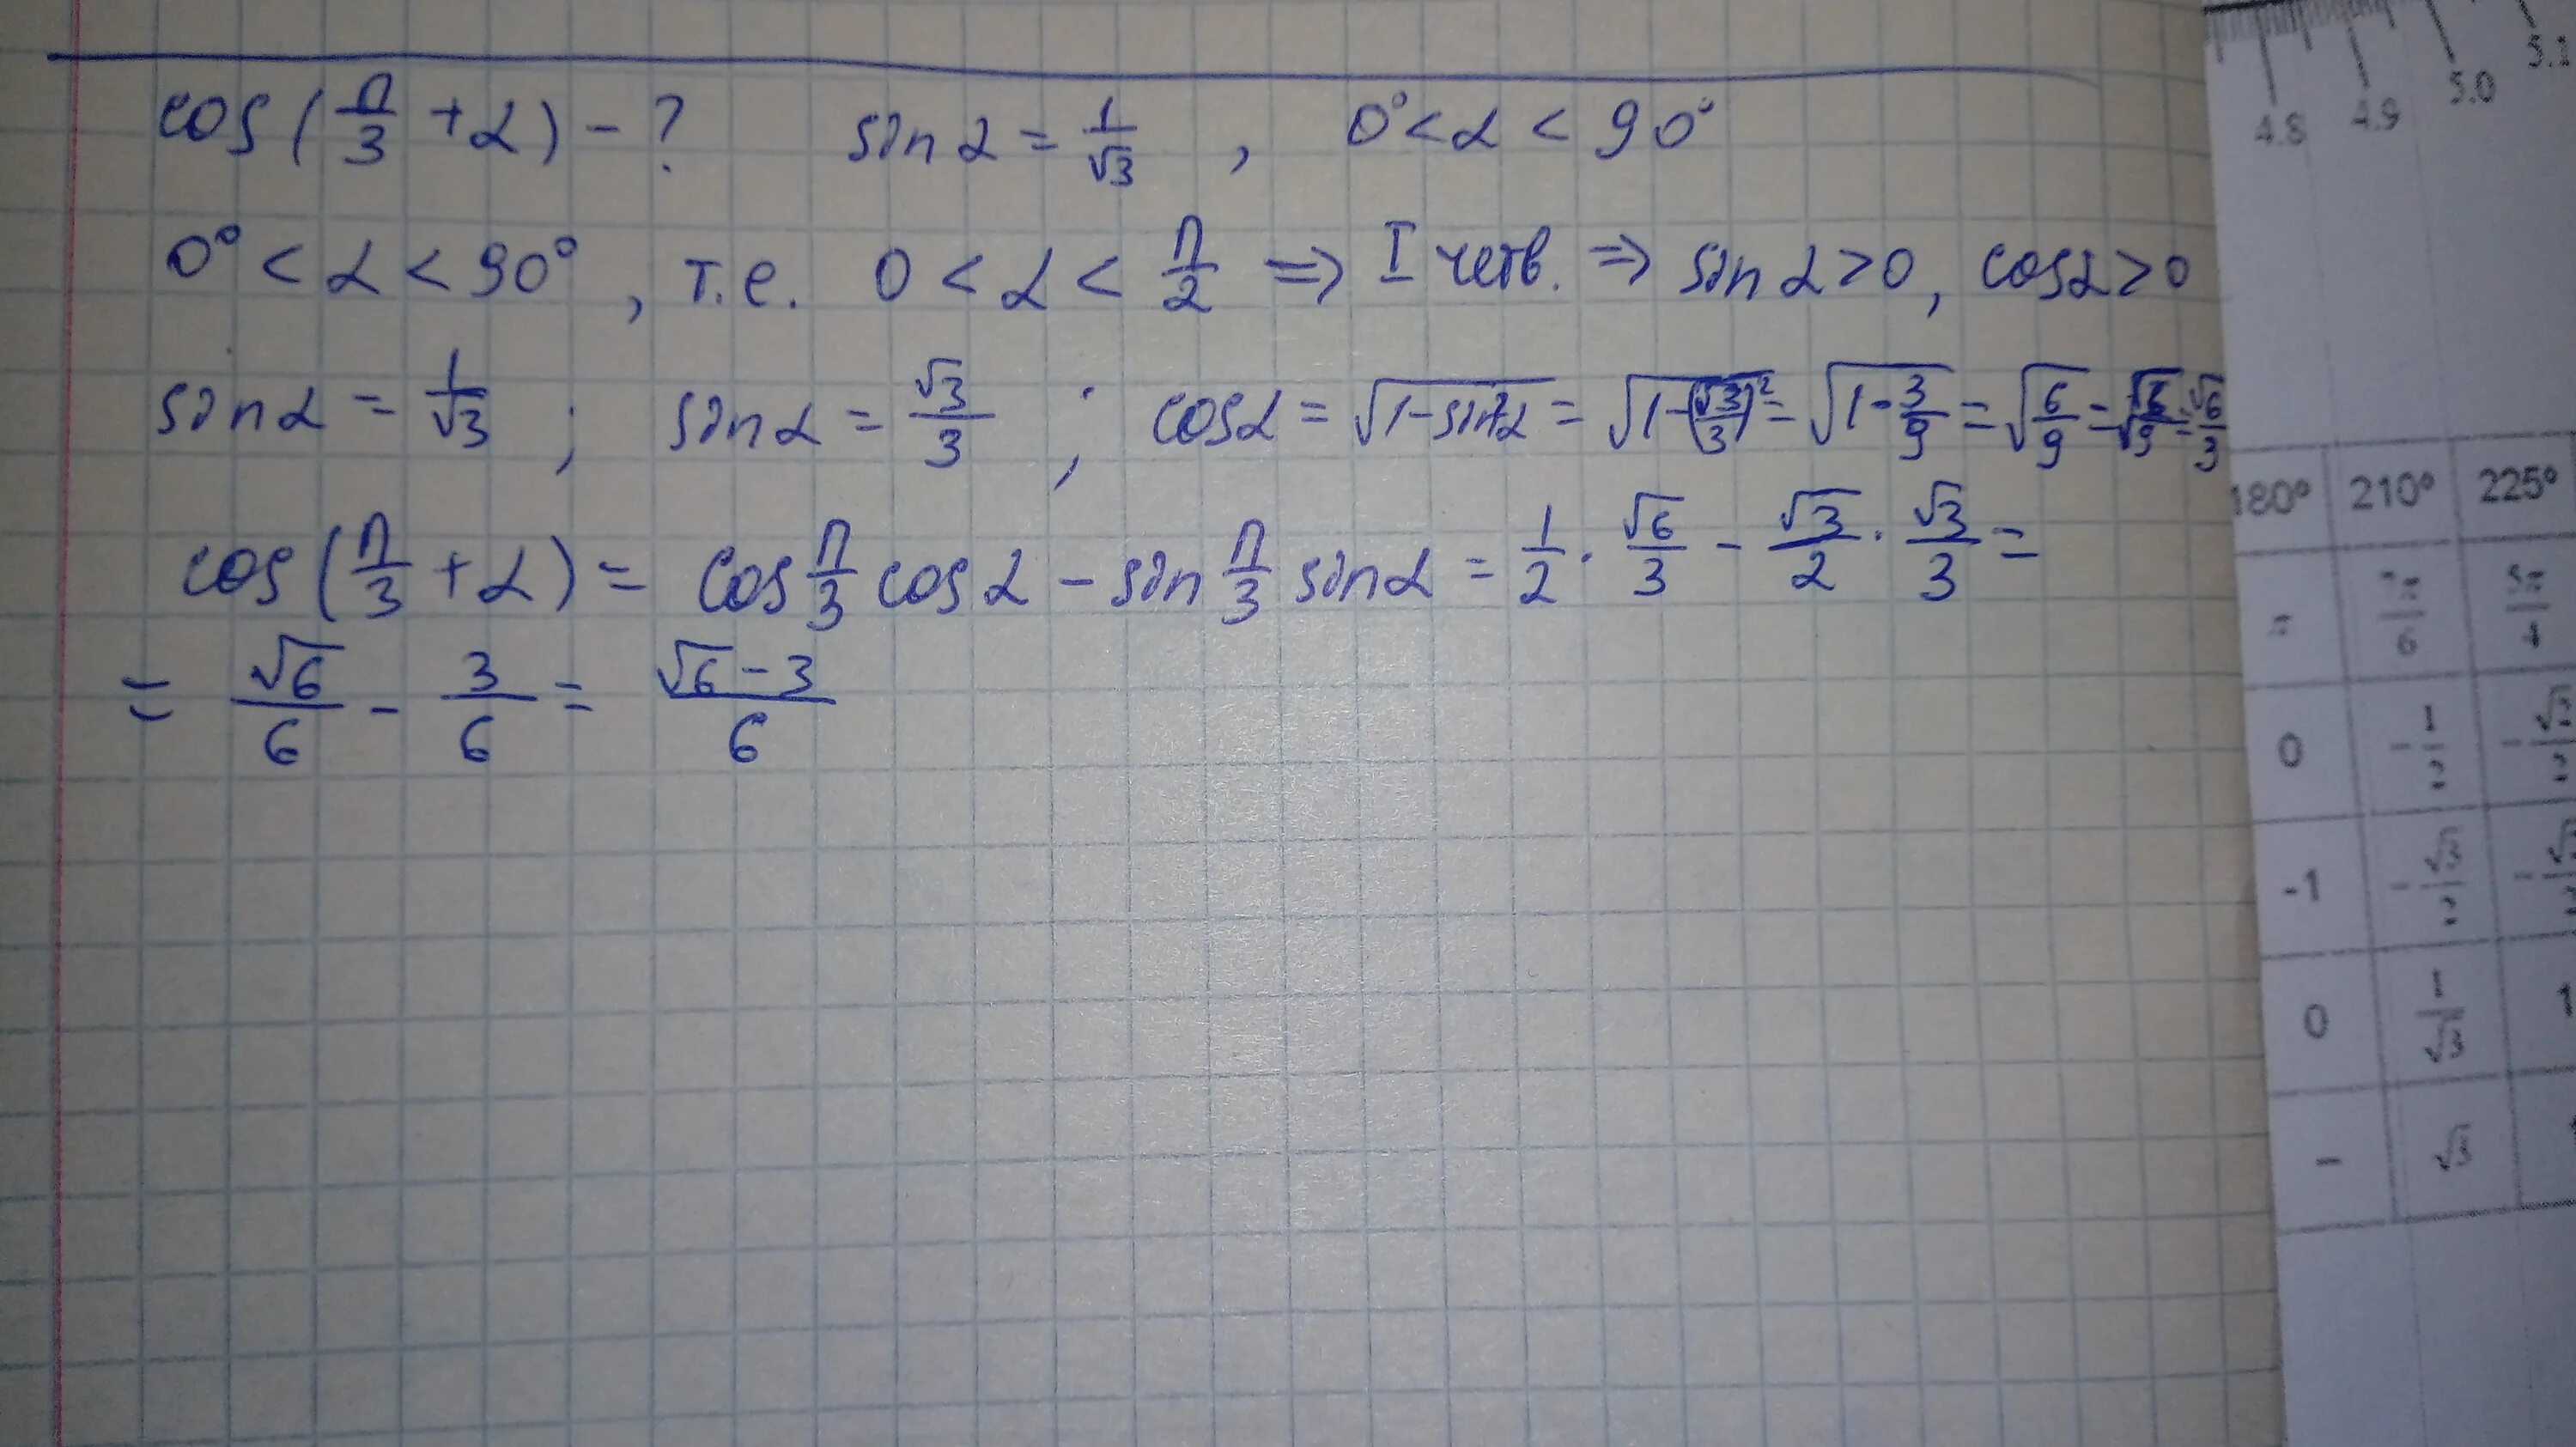 cos(π/3 + α) - ? sin α = 1/√3 , 0° < α < 90°
0° < α < 90° , т.е. 0 < α < π/2 => I четв. => sin α > 0, cos α > 0
sin α = 1/√3 ; sin α = √3/3 ; cos α = √(1 - sin²α) = √(1 - (√3/3)²) = √(1 - 3/9) = √(6/9) = √6/√9 = √6/3
cos(π/3 + α) = cos π/3 cos α - sin π/3 sin α = 1/2 · √6/3 - √3/2 · √3/3 =
= √6/6 - 3/6 = (√6 - 3)/6
4.8 4.9 5.0 5.1
180° 210° 225°
π 7π/6 5π/4
0 -1/2 -√2/2
-1 -√3/2
0 1/√3 1
- √3